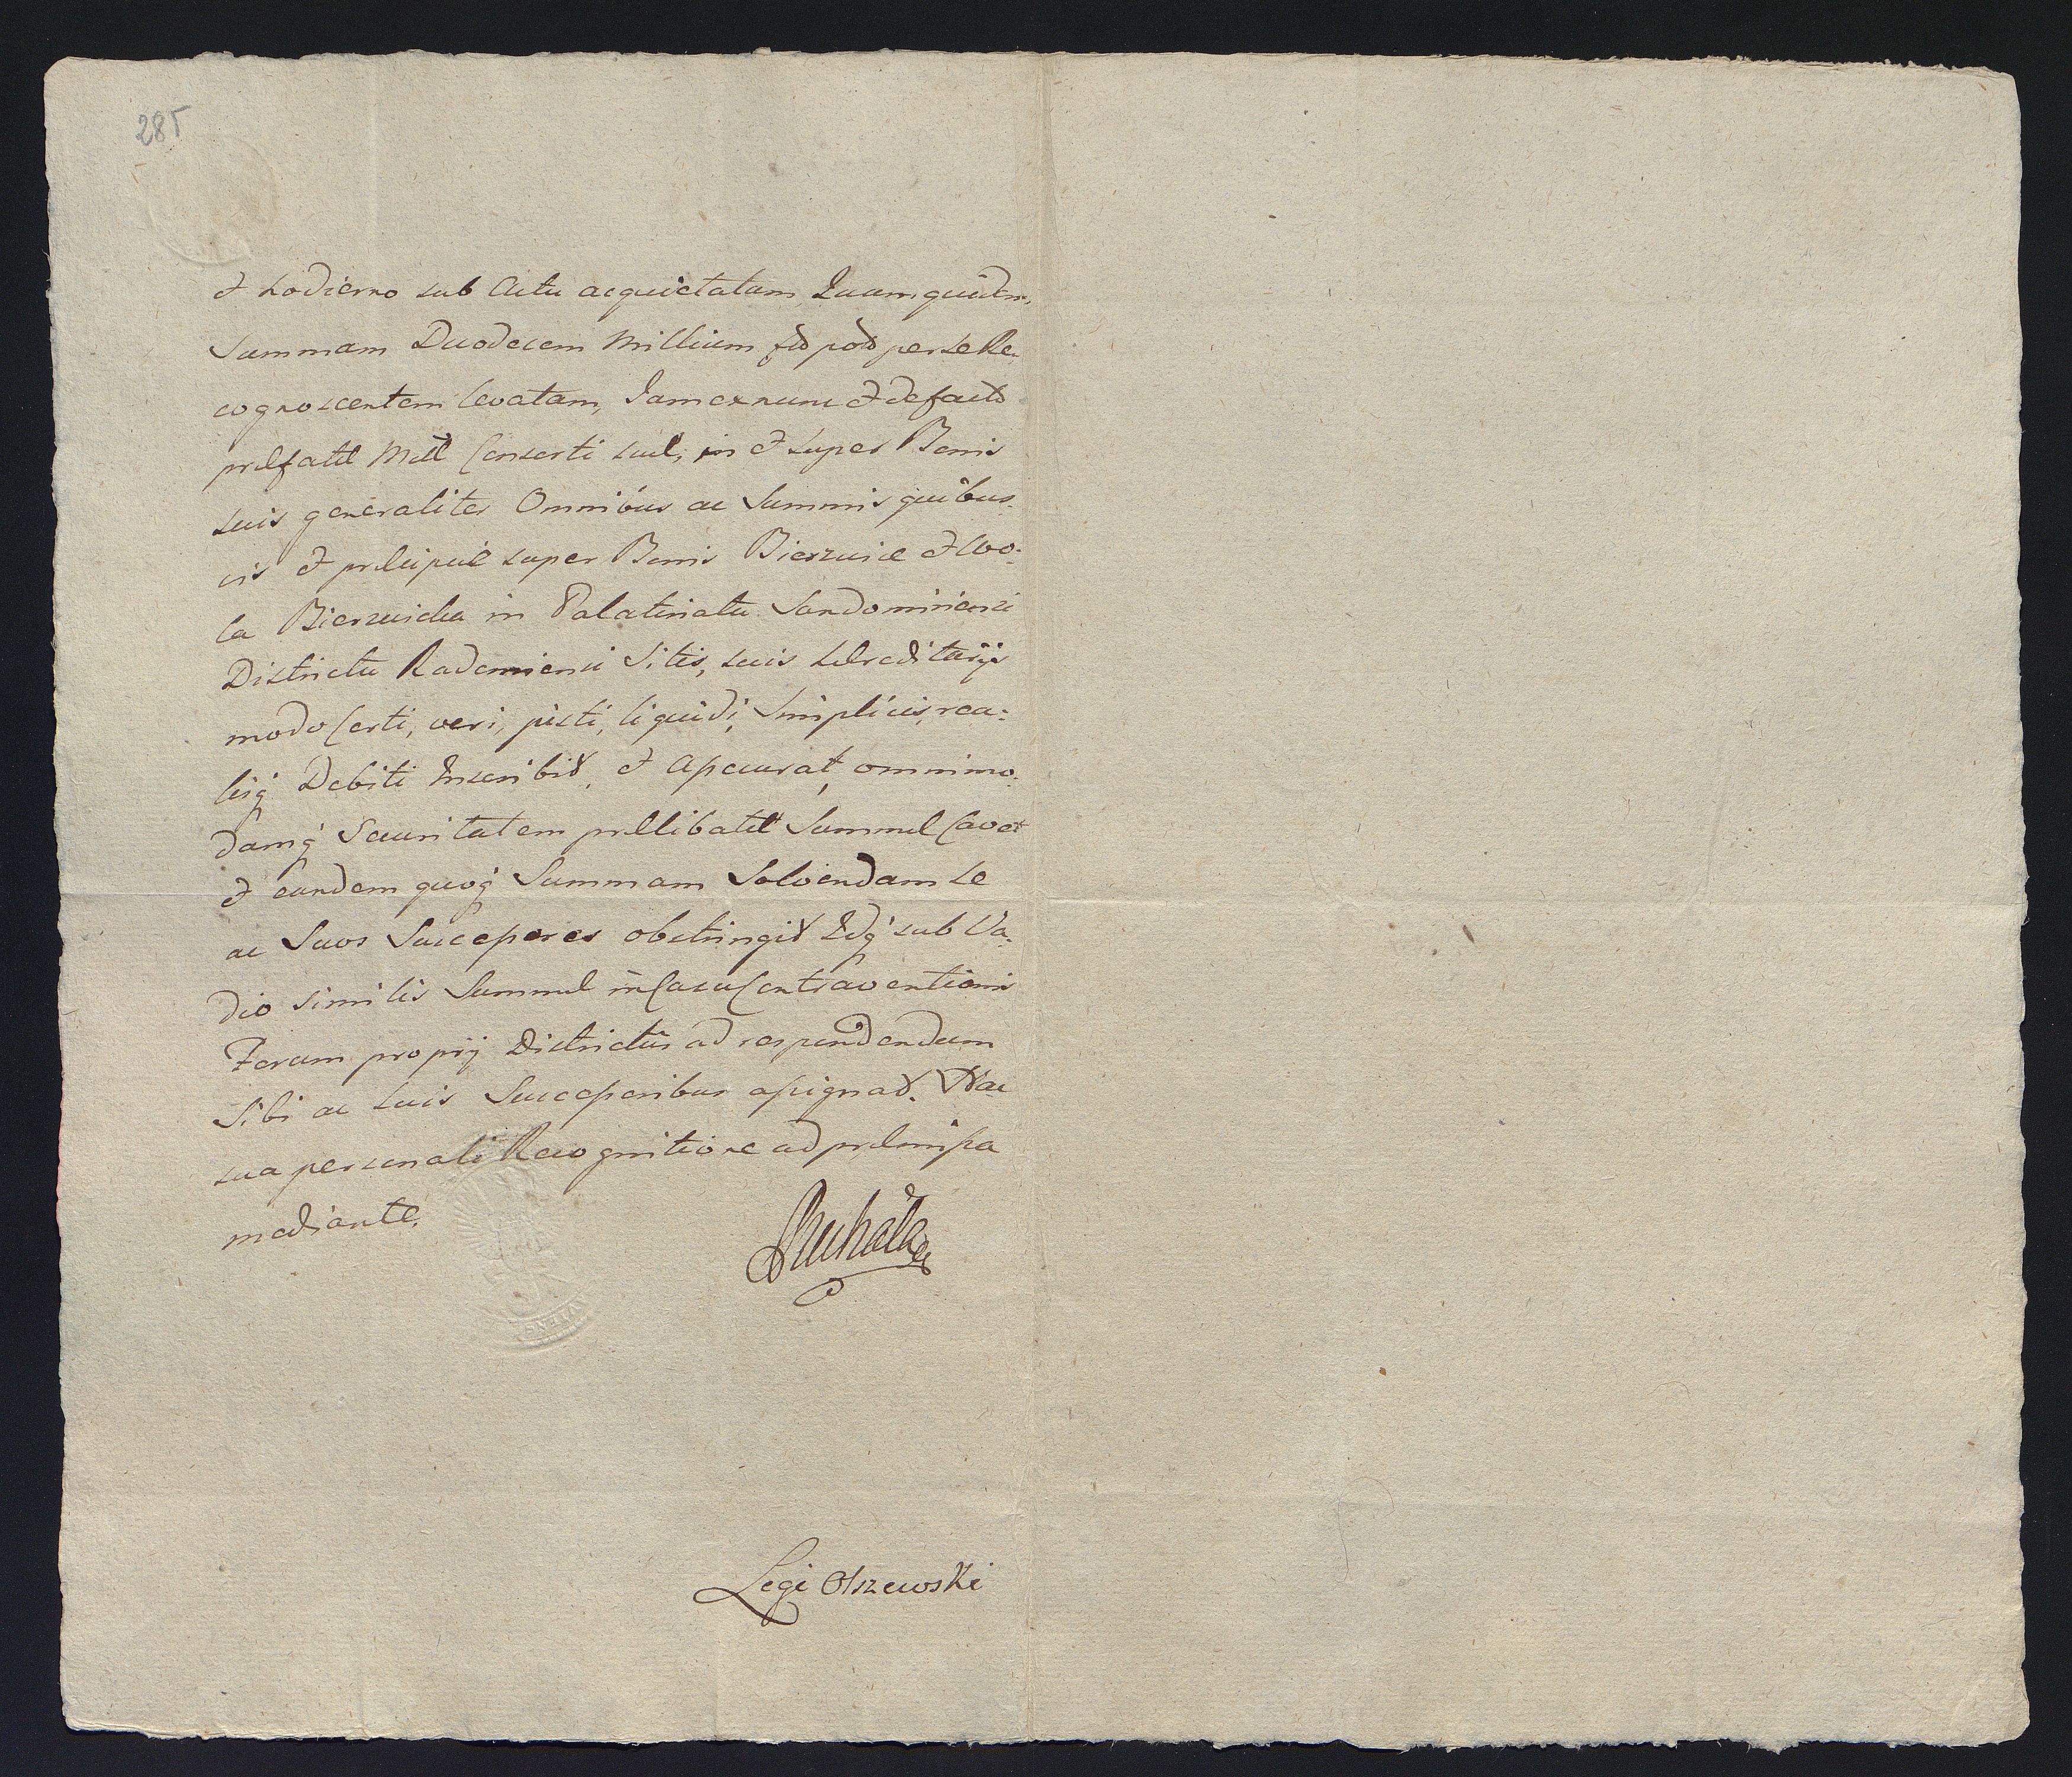 285
et hodierno sub Actu acquietatam, Quamquidm,
Summam Duodecem Millium fld pold per se Re-
cognoscentem levatam, Jam ex nunc et de facto
præfatæ Mttæ Consorti suæ, in et super Bonis
suis generaliter Omnibus ac Summis quibus-
vis et præcipuè super Bonis Bierwce et Wo-
la Bierwiecka in Palatinatu Sandomiriensi
Districtu Radomiensi Sitis, suis hæreditarijs
modo Certi, veri, justi, liquidi, Simplicis, rea-
lisq Debiti Inscribit, et Assecurat, omnimo-
damq Securitatem prælibatæ Summæ Cavet
et eandem quoq Summam Solvendam se
ac Suos Successores obstringit Idq sub Va-
dio similis Summæ in Casu Contraventionis
Forum proprij Districtus ad respondendum
Sibi ac Suis Successoribus assignat. Hac
sua personali Recognitione ad præmissa
mediante.
Legi Olszewski